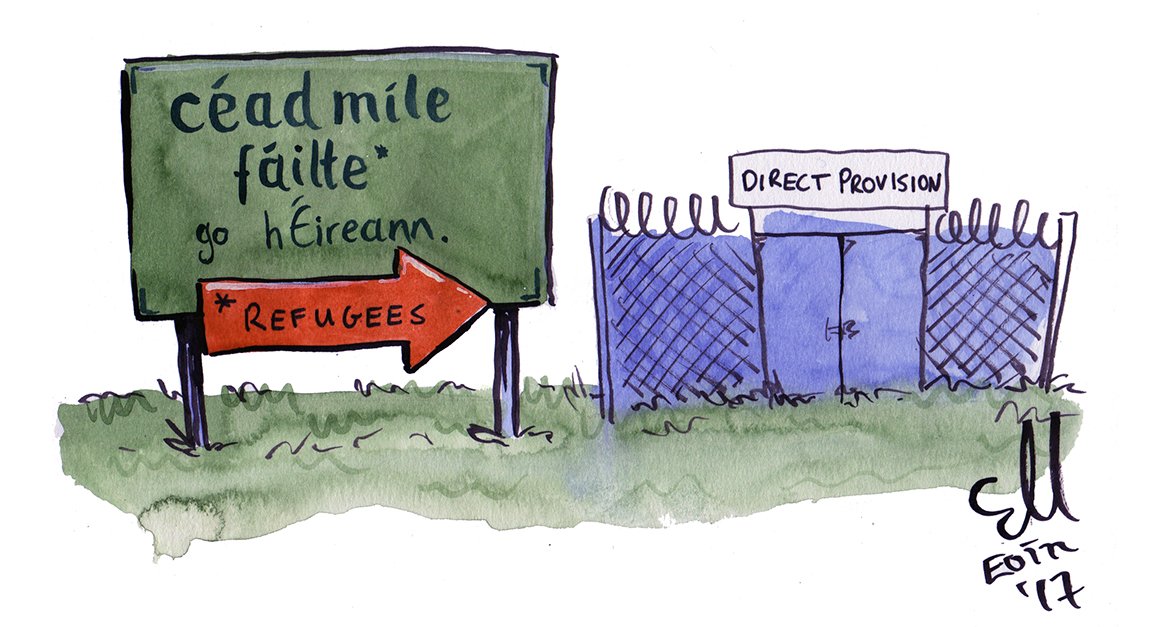 céad míle
fáilte*
go hÉireann.
* REFUGEES
DIRECT PROVISION
EM
EOIN
'17